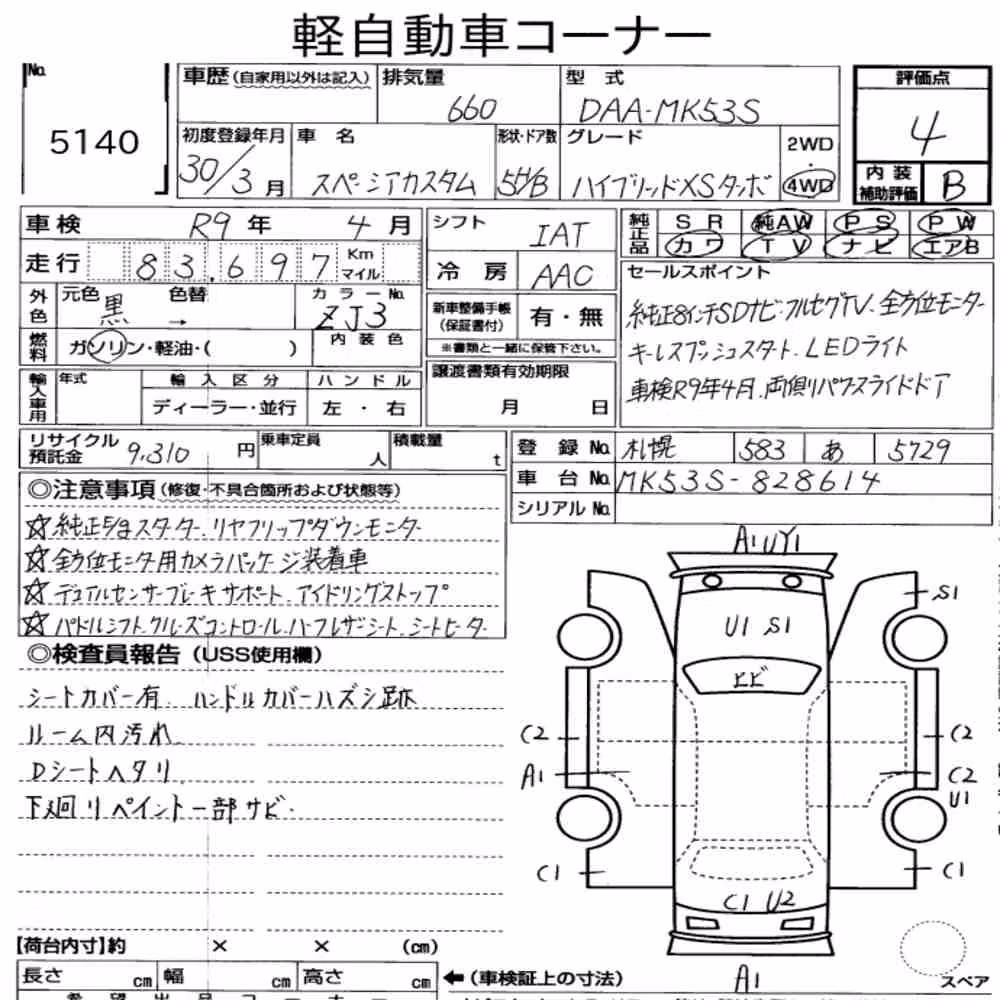 軽自動車コーナー
No. 5140
車歴(自家用以外は記入) 排気量 660 型式 DAA-MK53S
初度登録年月 30/3月 車名 スペーシアカスタム 形状・ドア数 5H/B グレード ハイブリッドXSターボ 2WD・4WD
評価点 4
内装補助評価 B
車検 R9年 4月
走行 83,697 Km マイル
外色 元色 黒 色替 → カラーNo. ZJ3
燃料 ガソリン・軽油・( ) 内装色
輸入車用 年式 輸入区分 ディーラー・並行 ハンドル 左・右
シフト IAT
冷房 AAC
新車整備手帳(保証書付) 有・無
※書類と一緒に保管下さい。
譲渡書類有効期限 月 日
純正品 SR 純AW PS PW
カワ TV ナビ エアB
セールスポイント
純正8インチSDナビ・フルセグTV・全方位モニター
キーレスプッシュスタート・LEDライト
車検R9年4月・両側パワースライドドア
リサイクル預託金 9,310円 乗車定員 人 積載量 t
登録No. 札幌 583 あ 5729
車台No. MK53S-828614
シリアルNo.
◎注意事項(修復・不具合箇所および状態等)
☆純正E/gスターター、リヤフリップダウンモニター
☆全方位モニター用カメラパッケージ装着車
☆デュアルセンサーブレーキサポート、アイドリングストップ
☆パドルシフト、クルーズコントロール、ハーフレザーシート、シートヒーター
◎検査員報告(USS使用欄)
シートカバー有、ハンドルカバーハズシ跡
ルーム内汚れ
Dシートヘタリ
下廻りペイント一部サビ・
A1 U Y1
S1
U1 S1
ヒビ
C2 C2
A1 C2
U1
C1 C1
C1 U2
A1
スペア
【荷台内寸】約 × × (cm)
長さ cm 幅 cm 高さ cm ←(車検証上の寸法)